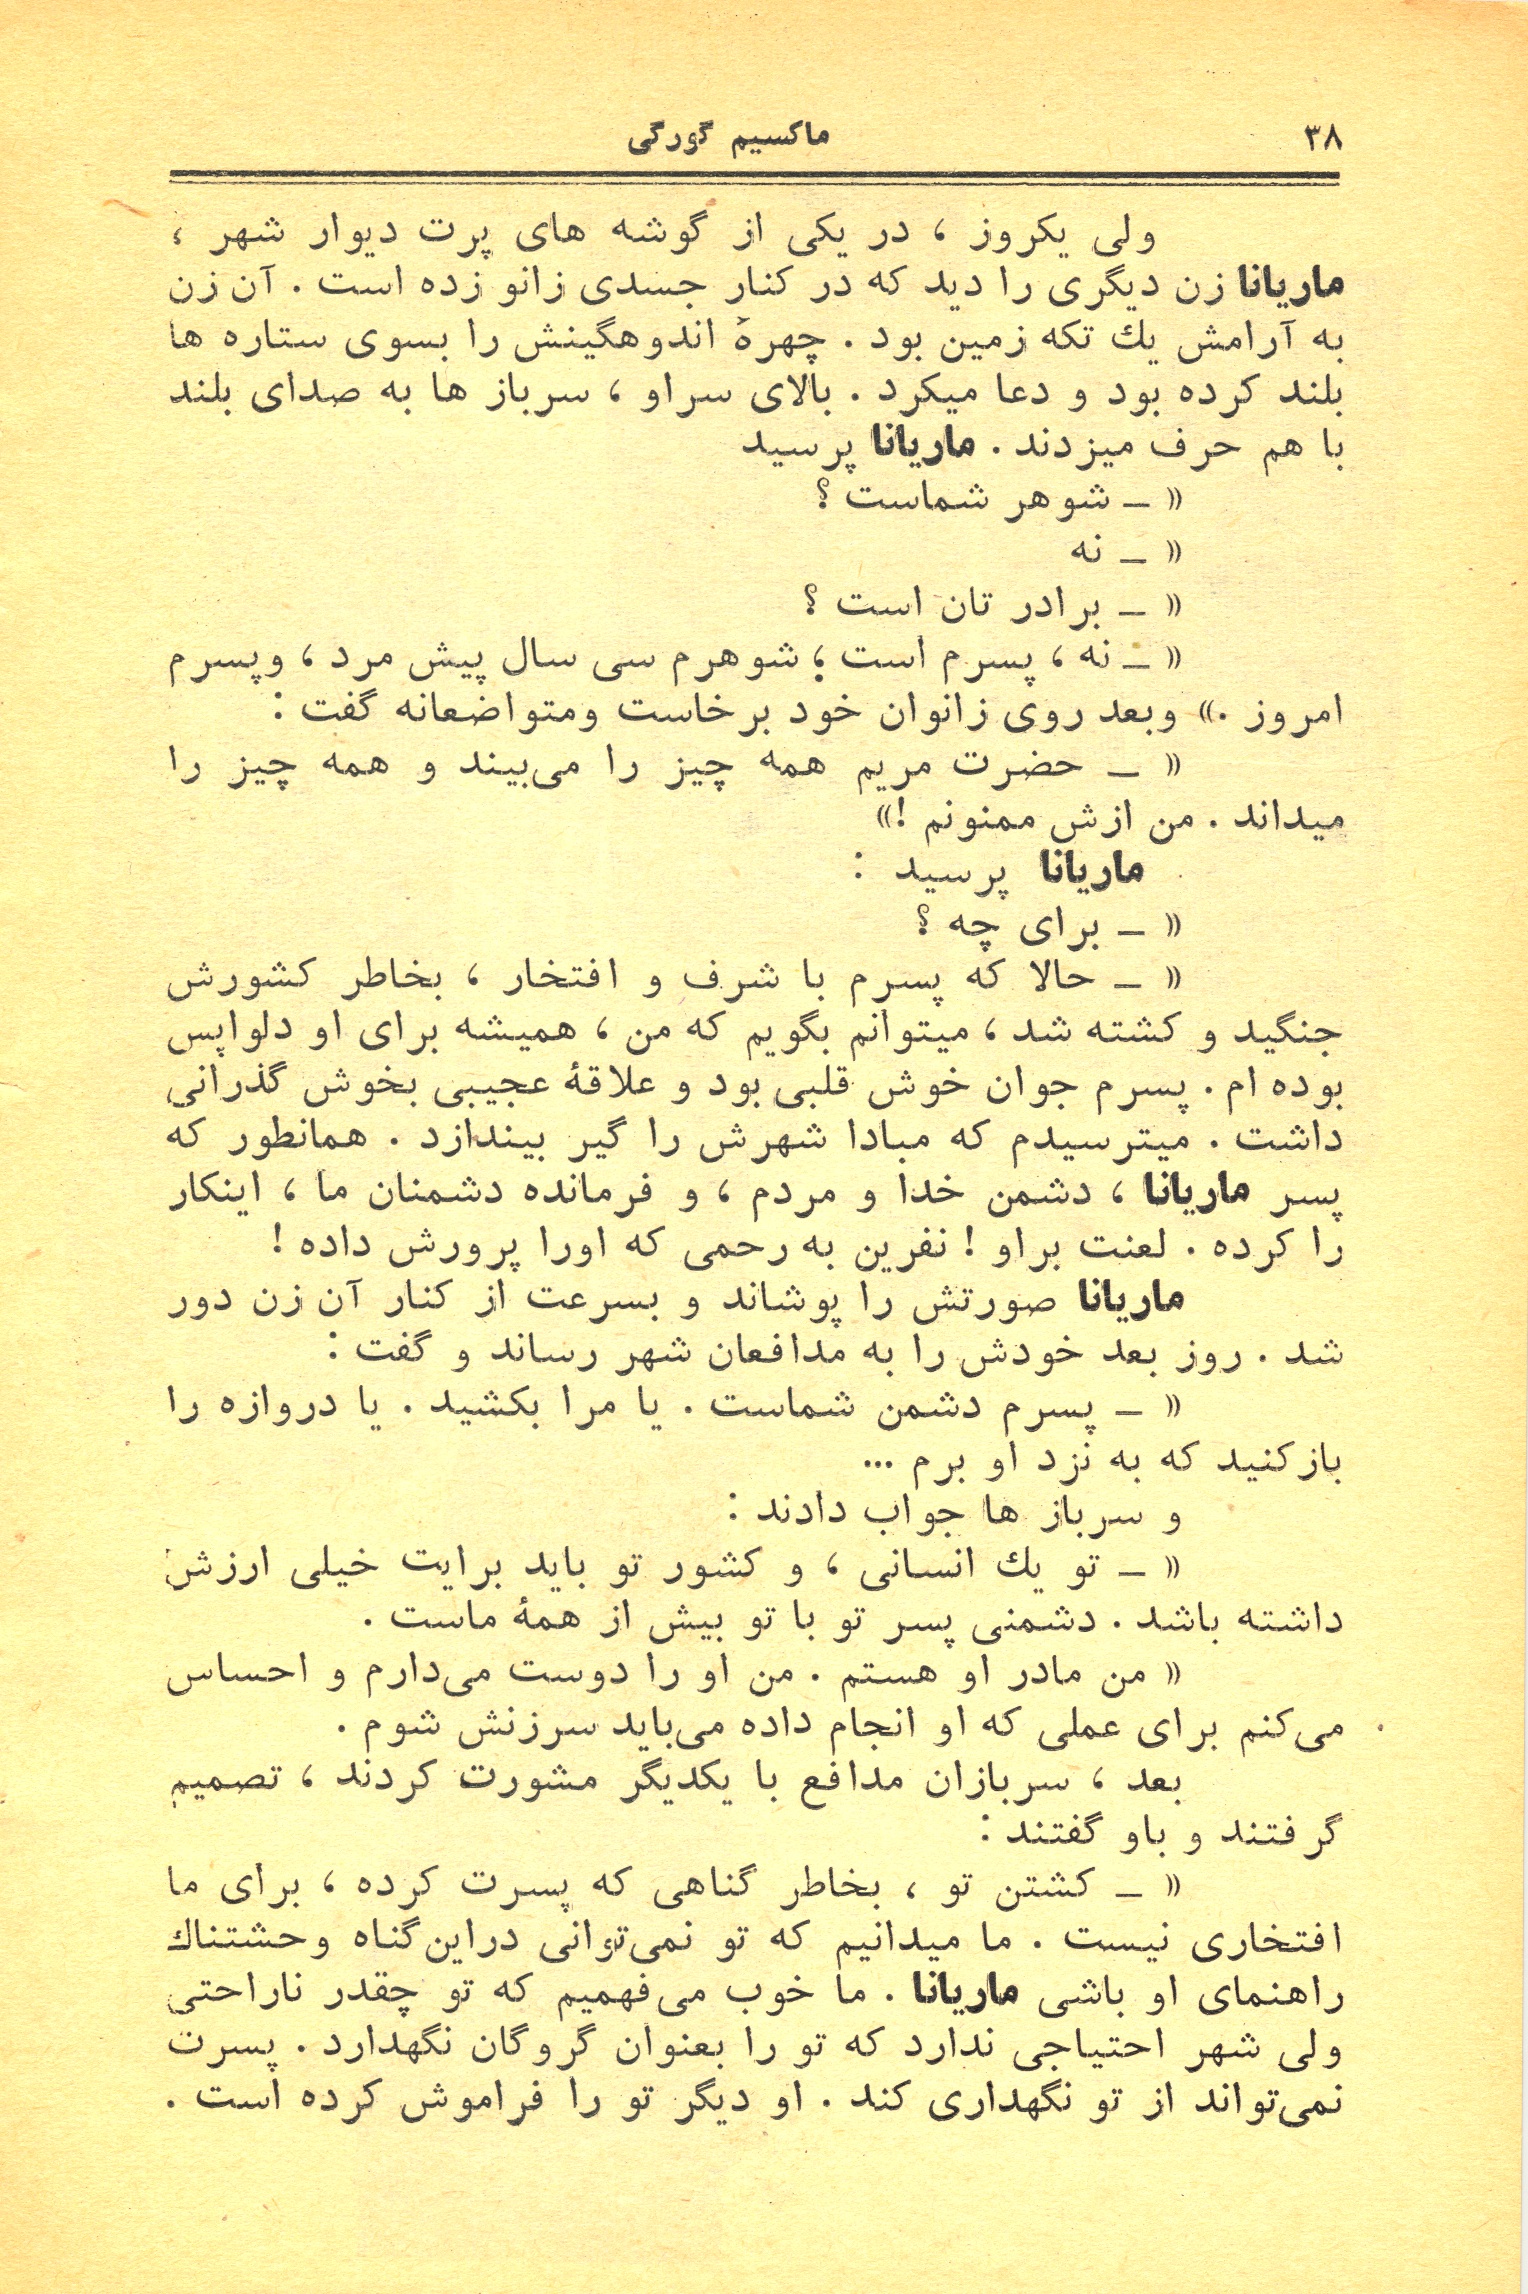 ۳۸
ماکسیم گورگی
ولی یکروز ، در یکی از گوشه های پرت دیوار شهر ،
ماریانا زن دیگری را دید که در کنار جسدی زانو زده است . آن زن
به آرامش یك تکه زمین بود . چهرهٔ اندوهگینش را بسوی ستاره ها
بلند کرده بود و دعا میکرد . بالای سراو ، سرباز ها به صدای بلند
با هم حرف میزدند . ماریانا پرسید
« ــ شوهر شماست ؟
« ــ نه
« ــ برادر تان است ؟
« ــ نه ، پسرم است ؛ شوهرم سی سال پیش مرد ، وپسرم
امروز .» وبعد روی زانوان خود برخاست ومتواضعانه گفت :
« ــ حضرت مریم همه چیز را می‌بیند و همه چیز را
میداند . من ازش ممنونم !»
ماریانا پرسید :
« ــ برای چه ؟
« ــ حالا که پسرم با شرف و افتخار ، بخاطر کشورش
جنگید و کشته شد ، میتوانم بگویم که من ، همیشه برای او دلواپس
بوده ام . پسرم جوان خوش قلبی بود و علاقهٔ عجیبی بخوش گذرانی
داشت . میترسیدم که مبادا شهرش را گیر بیندازد . همانطور که
پسر ماریانا ، دشمن خدا و مردم ، و فرمانده دشمنان ما ، اینکار
را کرده . لعنت براو ! نفرین به رحمی که اورا پرورش داده !
ماریانا صورتش را پوشاند و بسرعت از کنار آن زن دور
شد . روز بعد خودش را به مدافعان شهر رساند و گفت :
« ــ پسرم دشمن شماست . یا مرا بکشید . یا دروازه را
بازکنید که به نزد او برم ...
و سرباز ها جواب دادند :
« ــ تو یك انسانی ، و کشور تو باید برایت خیلی ارزش
داشته باشد . دشمنی پسر تو با تو بیش از همهٔ ماست .
« من مادر او هستم . من او را دوست می‌دارم و احساس
می‌کنم برای عملی که او انجام داده می‌باید سرزنش شوم .
بعد ، سربازان مدافع با یکدیگر مشورت کردند ، تصمیم
گرفتند و باو گفتند :
« ــ کشتن تو ، بخاطر گناهی که پسرت کرده ، برای ما
افتخاری نیست . ما میدانیم که تو نمی‌توانی دراین گناه وحشتناك
راهنمای او باشی ماریانا . ما خوب می‌فهمیم که تو چقدر ناراحتی
ولی شهر احتیاجی ندارد که تو را بعنوان گروگان نگهدارد . پسرت
نمی‌تواند از تو نگهداری کند . او دیگر تو را فراموش کرده است .